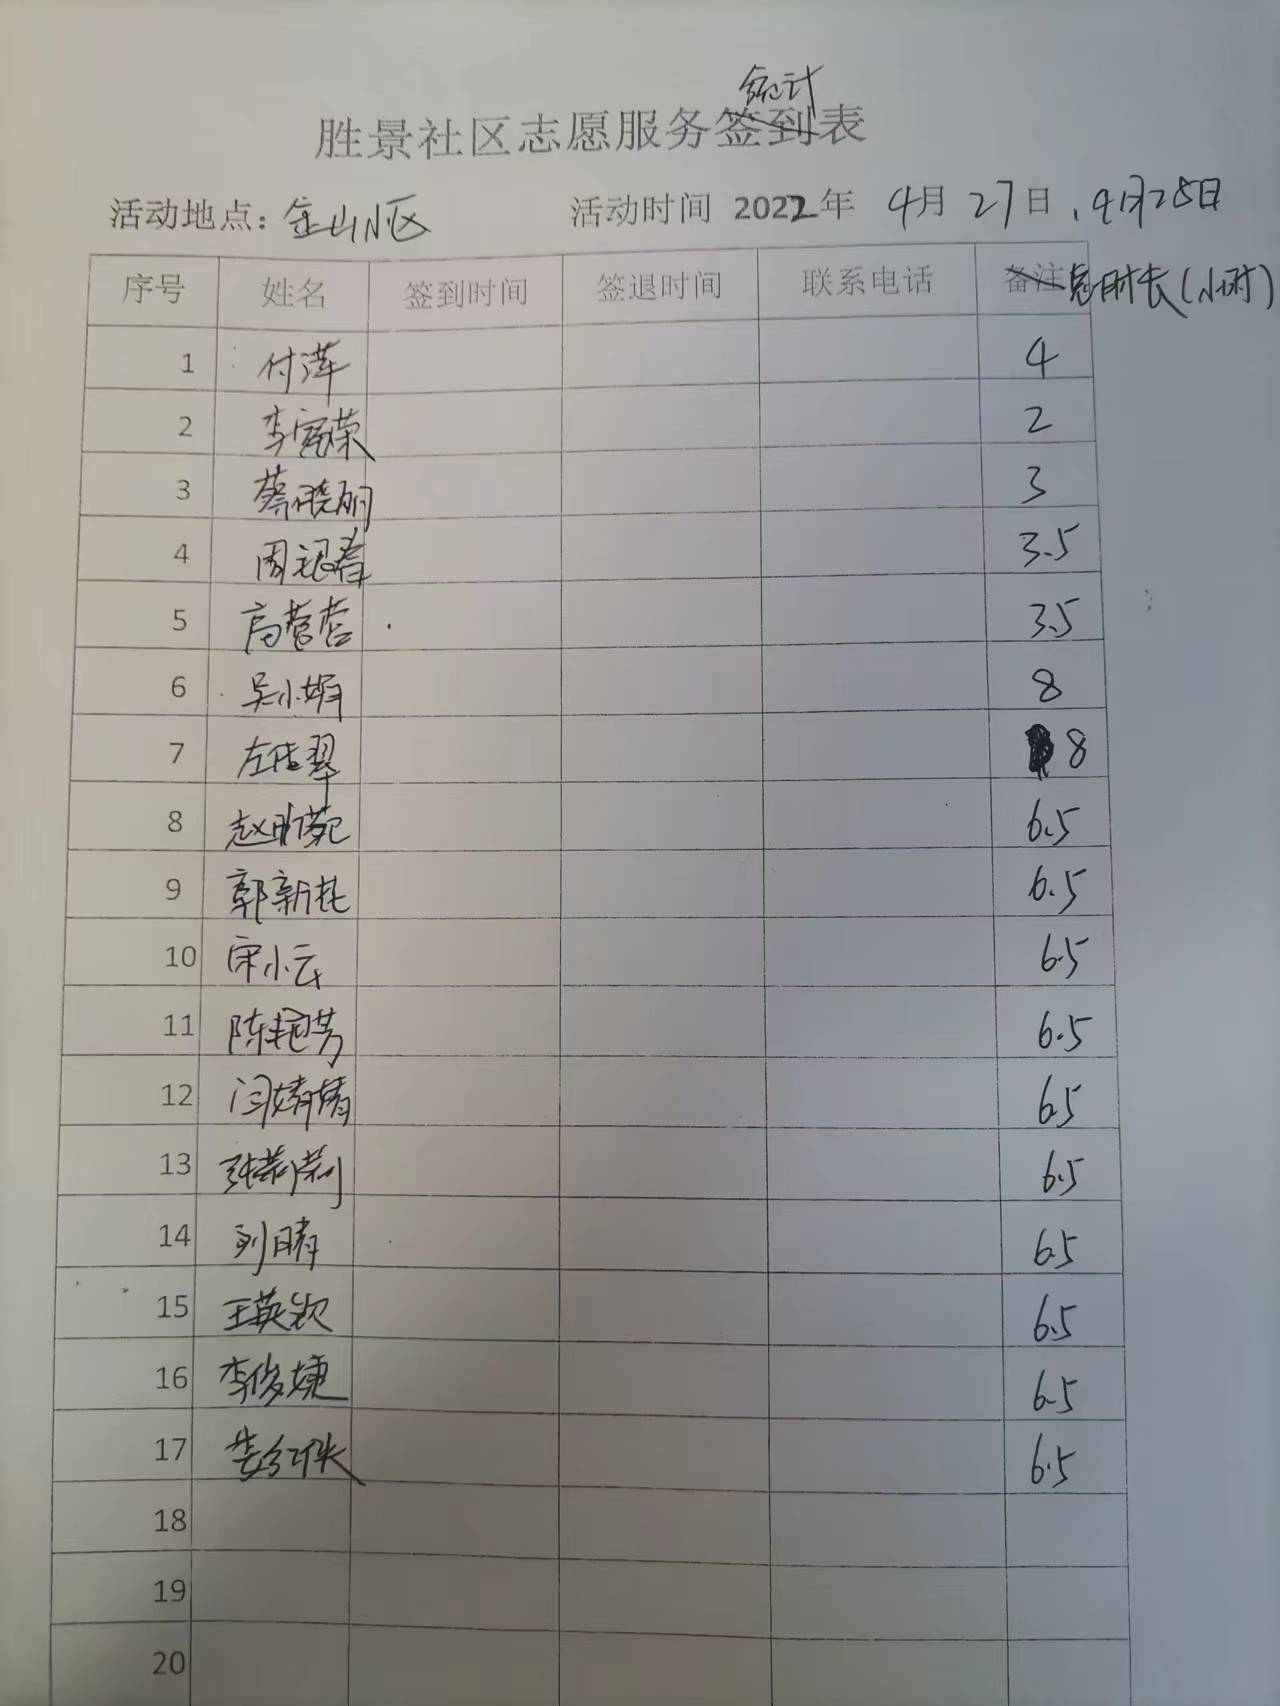 统计
胜景社区志愿服务签到表
活动地点：金山小区 活动时间 2022年 4月27日，4月28日
序号 姓名 签到时间 签退时间 联系电话 备注总时长(小时)
1 付萍 4
2 李富荣 2
3 蔡晓丽 3
4 周银春 3.5
5 高营营 3.5
6 吴小娟 8
7 左佳翠 8
8 赵明苑 6.5
9 郭新艳 6.5
10 宋小云 6.5
11 陈艳芳 6.5
12 闫婧婧 6.5
13 张莉莉 6.5
14 刘晴 6.5
15 王英钦 6.5
16 李俊婕 6.5
17 6.5
18
19
20